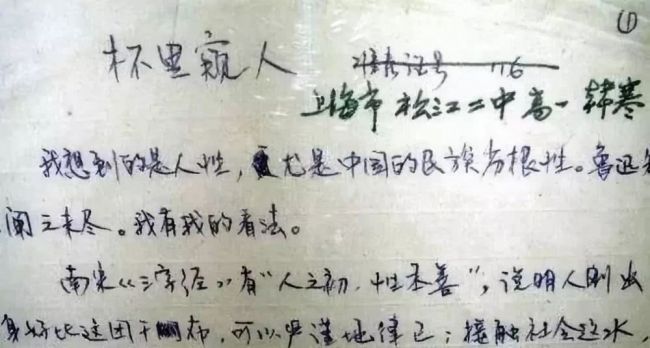 ①
杯里窥人
准考证号 116
上海市松江二中高一 韩寒
我想到的是人性,尤是中国的民族劣根性。鲁迅先
阐之未尽。我有我的看法。
南宋《三字经》有“人之初,性本善”,说明人刚出
身好比这团干布,可以严谨地律己;接触社会这水,